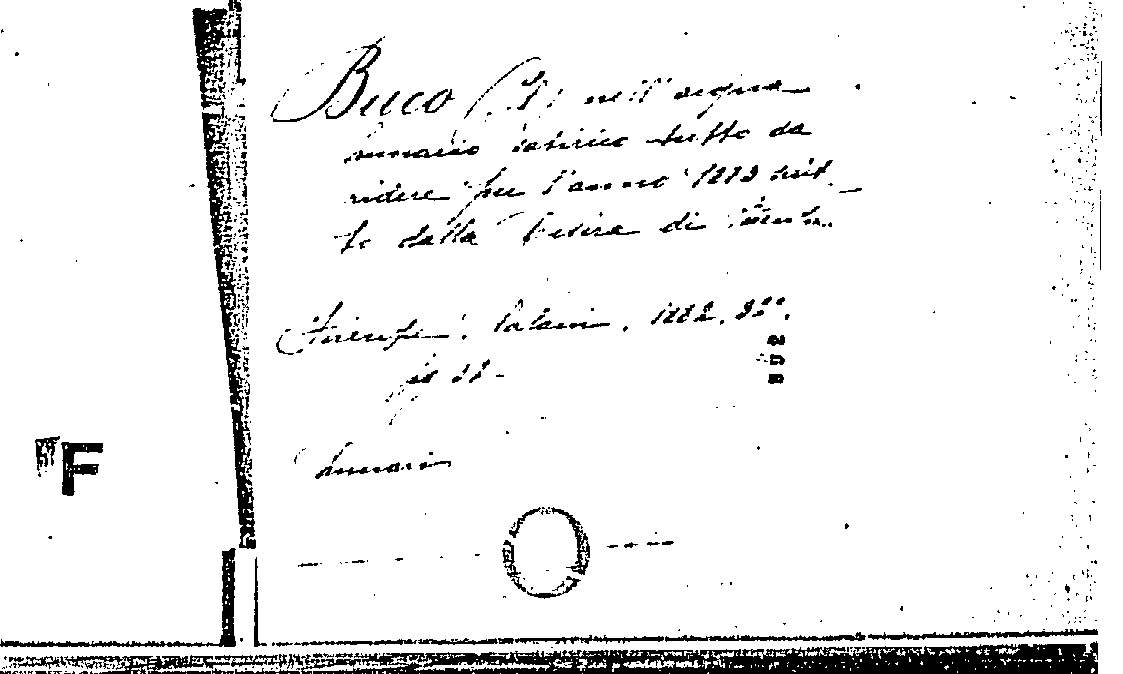 Buco (Il) nell'acqua
lunario satirico tutto da
ridere per l'anno 1883 scrit-
to dalla Sibilla di
Firenze, Salani, 1882, 32°.
pg 32-
Lunari
F